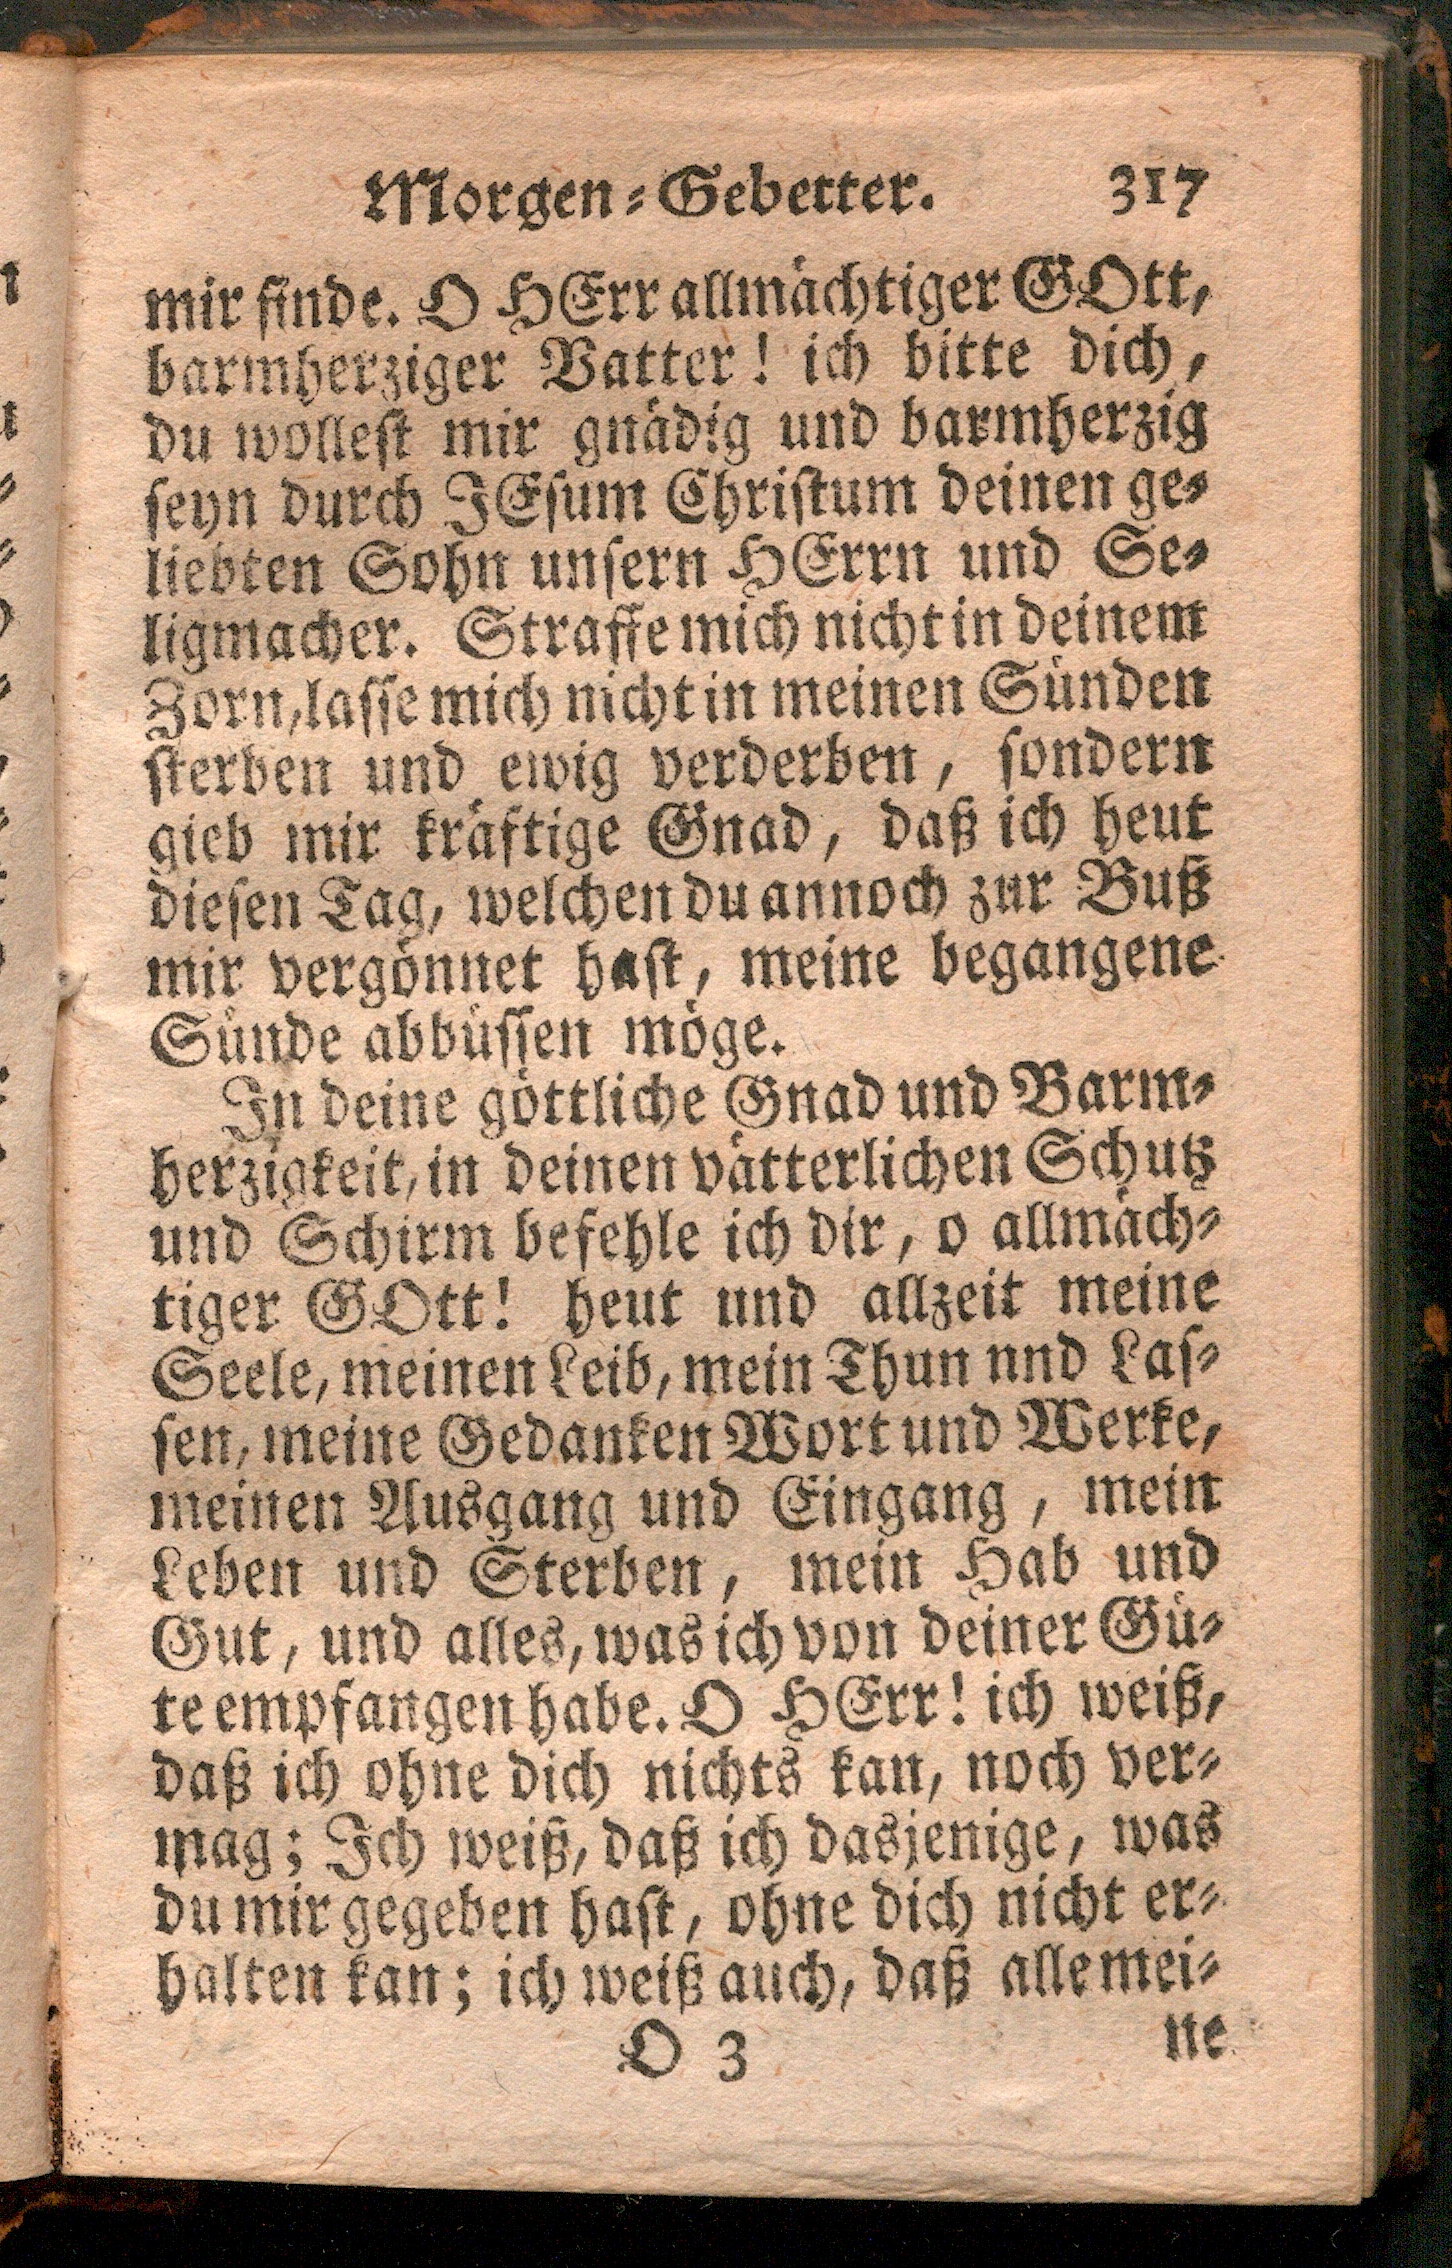 Morgen-Gebetter. 317
mir finde. O HErr allmächtiger GOtt,
barmherziger Vatter! ich bitte dich,
du wollest mir gnädig und barmherzig
seyn durch JEsum Christum deinen ge-
liebten Sohn unsern HErrn und Se-
ligmacher. Straffe mich nicht in deinem
Zorn, lasse mich nicht in meinen Sünden
sterben und ewig verderben, sondern
gieb mir kräftige Gnad, daß ich heut
diesen Tag, welchen du annoch zur Buß
mir vergönnet hast, meine begangene
Sünde abbüssen möge.
In deine göttliche Gnad und Barm-
herzigkeit, in deinen vätterlichen Schutz
und Schirm befehle ich dir, o allmäch-
tiger GOtt! heut und allzeit meine
Seele, meinen Leib, mein Thun nnd Las-
sen, meine Gedanken Wort und Werke,
meinen Ausgang und Eingang, mein
Leben und Sterben, mein Hab und
Gut, und alles, was ich von deiner Gü-
te empfangen habe. O HErr! ich weiß,
daß ich ohne dich nichts kan, noch ver-
mag; Ich weiß, daß ich dasjenige, was
du mir gegeben hast, ohne dich nicht er-
halten kan; ich weiß auch, daß alle mei-
O 3 ne